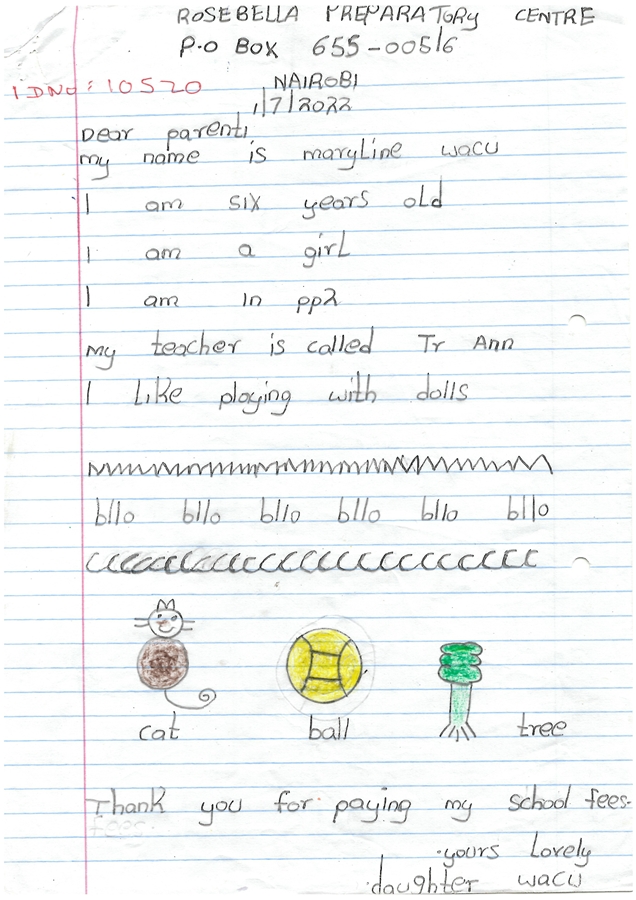 ROSEBELLA PREPARATORY CENTRE
P.O BOX 655-00516
IDNO: 10520
NAIROBI
1/7/2022
Dear parent,
my name is maryline wacu
I am six years old
I am a girl
I am in pp2
my teacher is called Tr Ann
I Like playing with dolls
bllo bllo bllo bllo bllo bllo
cat ball tree
Thank you for paying my school fees.
fees.
yours Lovely
daughter wacu